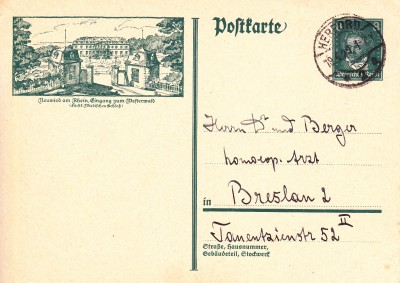 Postkarte
HERFORD
Deutsches Reich
Neuwied am Rhein, Eingang zum Westerwald
Herrn Dr med Berger
homöop. Arzt
in Breslau 2
Tauentzienstr 52 II
Straße, Hausnummer,
Gebäudeteil, Stockwerk